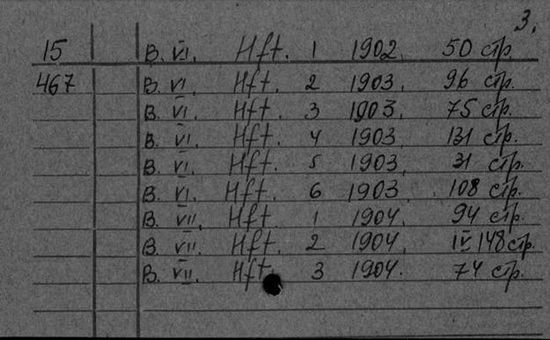 3.
15 B. VI. Hft. 1 1902. 50 стр.
467 B. VI. Hft. 2 1903. 96 стр.
B. VI. Hft. 3 1903. 75 стр.
B. VI. Hft. 4 1903. 131 стр.
B. VI. Hft. 5 1903. 31 стр.
B. VI. Hft. 6 1903. 108 стр.
B. VII. Hft. 1 1904. 94 стр.
B. VII. Hft. 2 1904. IV. 148 стр.
B. VII. Hft. 3 1904. 74 стр.